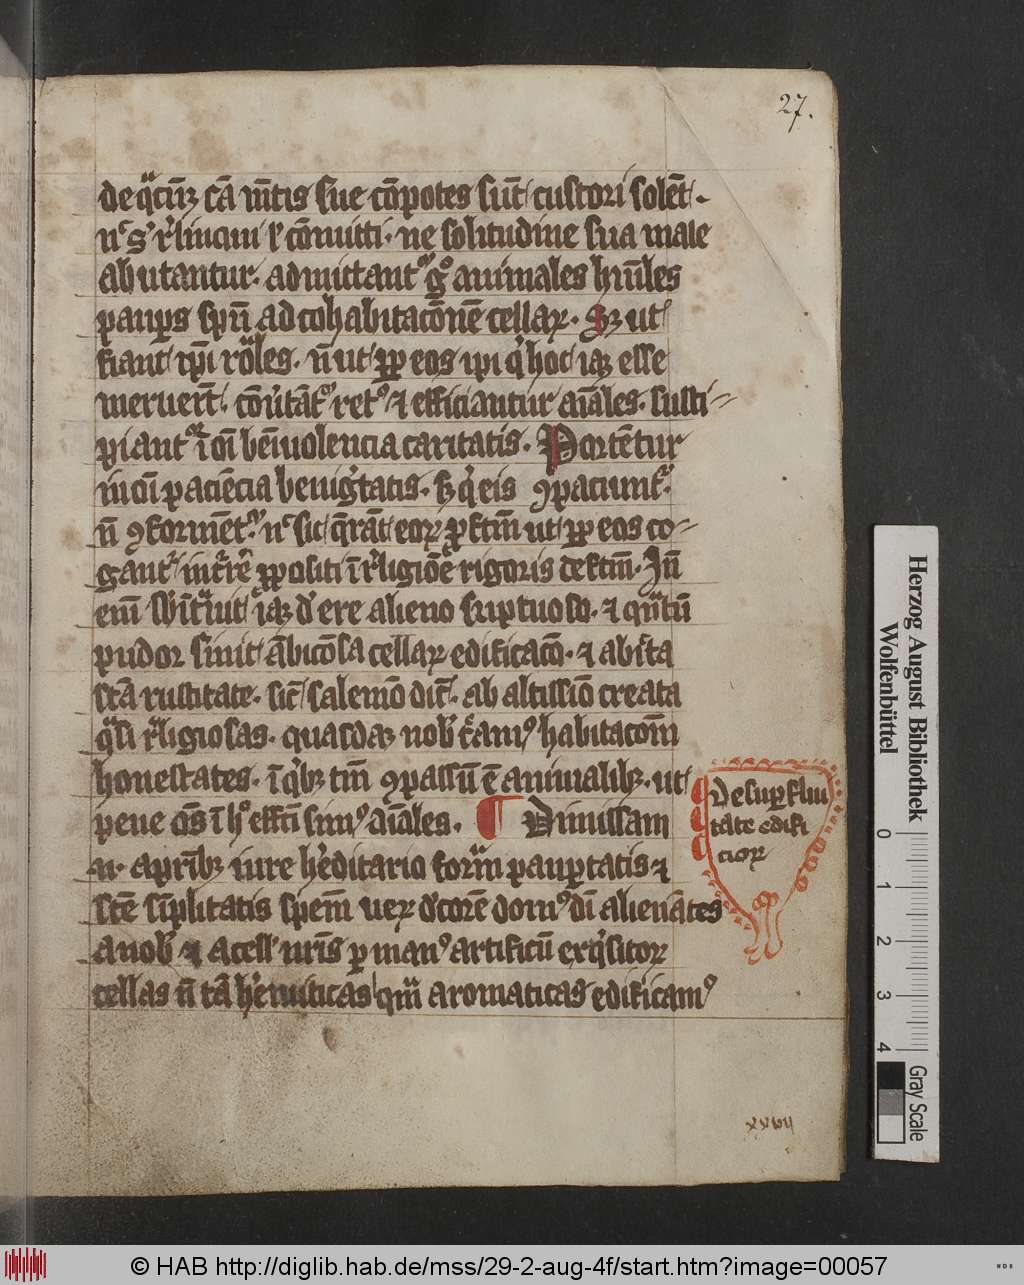 27.
de qͣcūꝫ cā mētis sue cōpotes sūt custori solēt.
nͨ s' r̄linqui ł cōmitti. ne solitudine sua male
abutantur. admittantᷣ gͦ animales hūiles
paupꝭs spū ad cohabitacōnē cellaꝝ. Sꝫ ut
fiant ip̄i rōles. nō ut ꝓp eos ipi qͥ hoc iaꝫ esse
meruerūt.
et efficiantur aīales. susci-
piantᷣ ī oī bēiuolencia caritatis. Portētur
in oī paciēcia benigͥtatis. sꝫ qͥ eis ꝯpaciuntᷣ.
nō ꝯformēt. nͨ sic q̄rāt eoꝝ ꝓfctm̄ ut ꝓp eos co-
gantᷣ
ꝓpositi ī r̄ligiōe rigoris defctm̄. In̄
em̄
iaꝫ d' ere alieno sūptuosa. et qͣntū
pudor sinit ābicōsa cellaꝝ edificacō. et absc̄ta
sc̄a rusticitate. sic̄ salemō dic̄. ab altissīo creata
qͣsi r̄ligiosas. quasdaꝫ nob̄ habitacom̄
honestates. ī qͥbꝫ tm̄ ꝯpassū ē animalibꝫ. ut
pene oēs ī hͦ effc̄i simꝰ aīales. ¶ Dimissam
n. a pr̄ibꝫ iure hͤditario formā paupꝭtatis et
sc̄e sīplitatis spēm ueꝝ d'corē domꝰ dī alienātes
a nob̄ et a cell' nr̄is ꝑ manꝰ artificū exqͥsitoꝝ
cellas nō tā hͤmiticas qͣm aromaticas edificamꝰ
De suꝑflui
tate edifi
cioꝝ
xxvii
Herzog August Bibliothek
Wolfenbüttel
0 1 2 3 4
Gray Scale
© HAB http://diglib.hab.de/mss/29-2-aug-4f/start.htm?image=00057